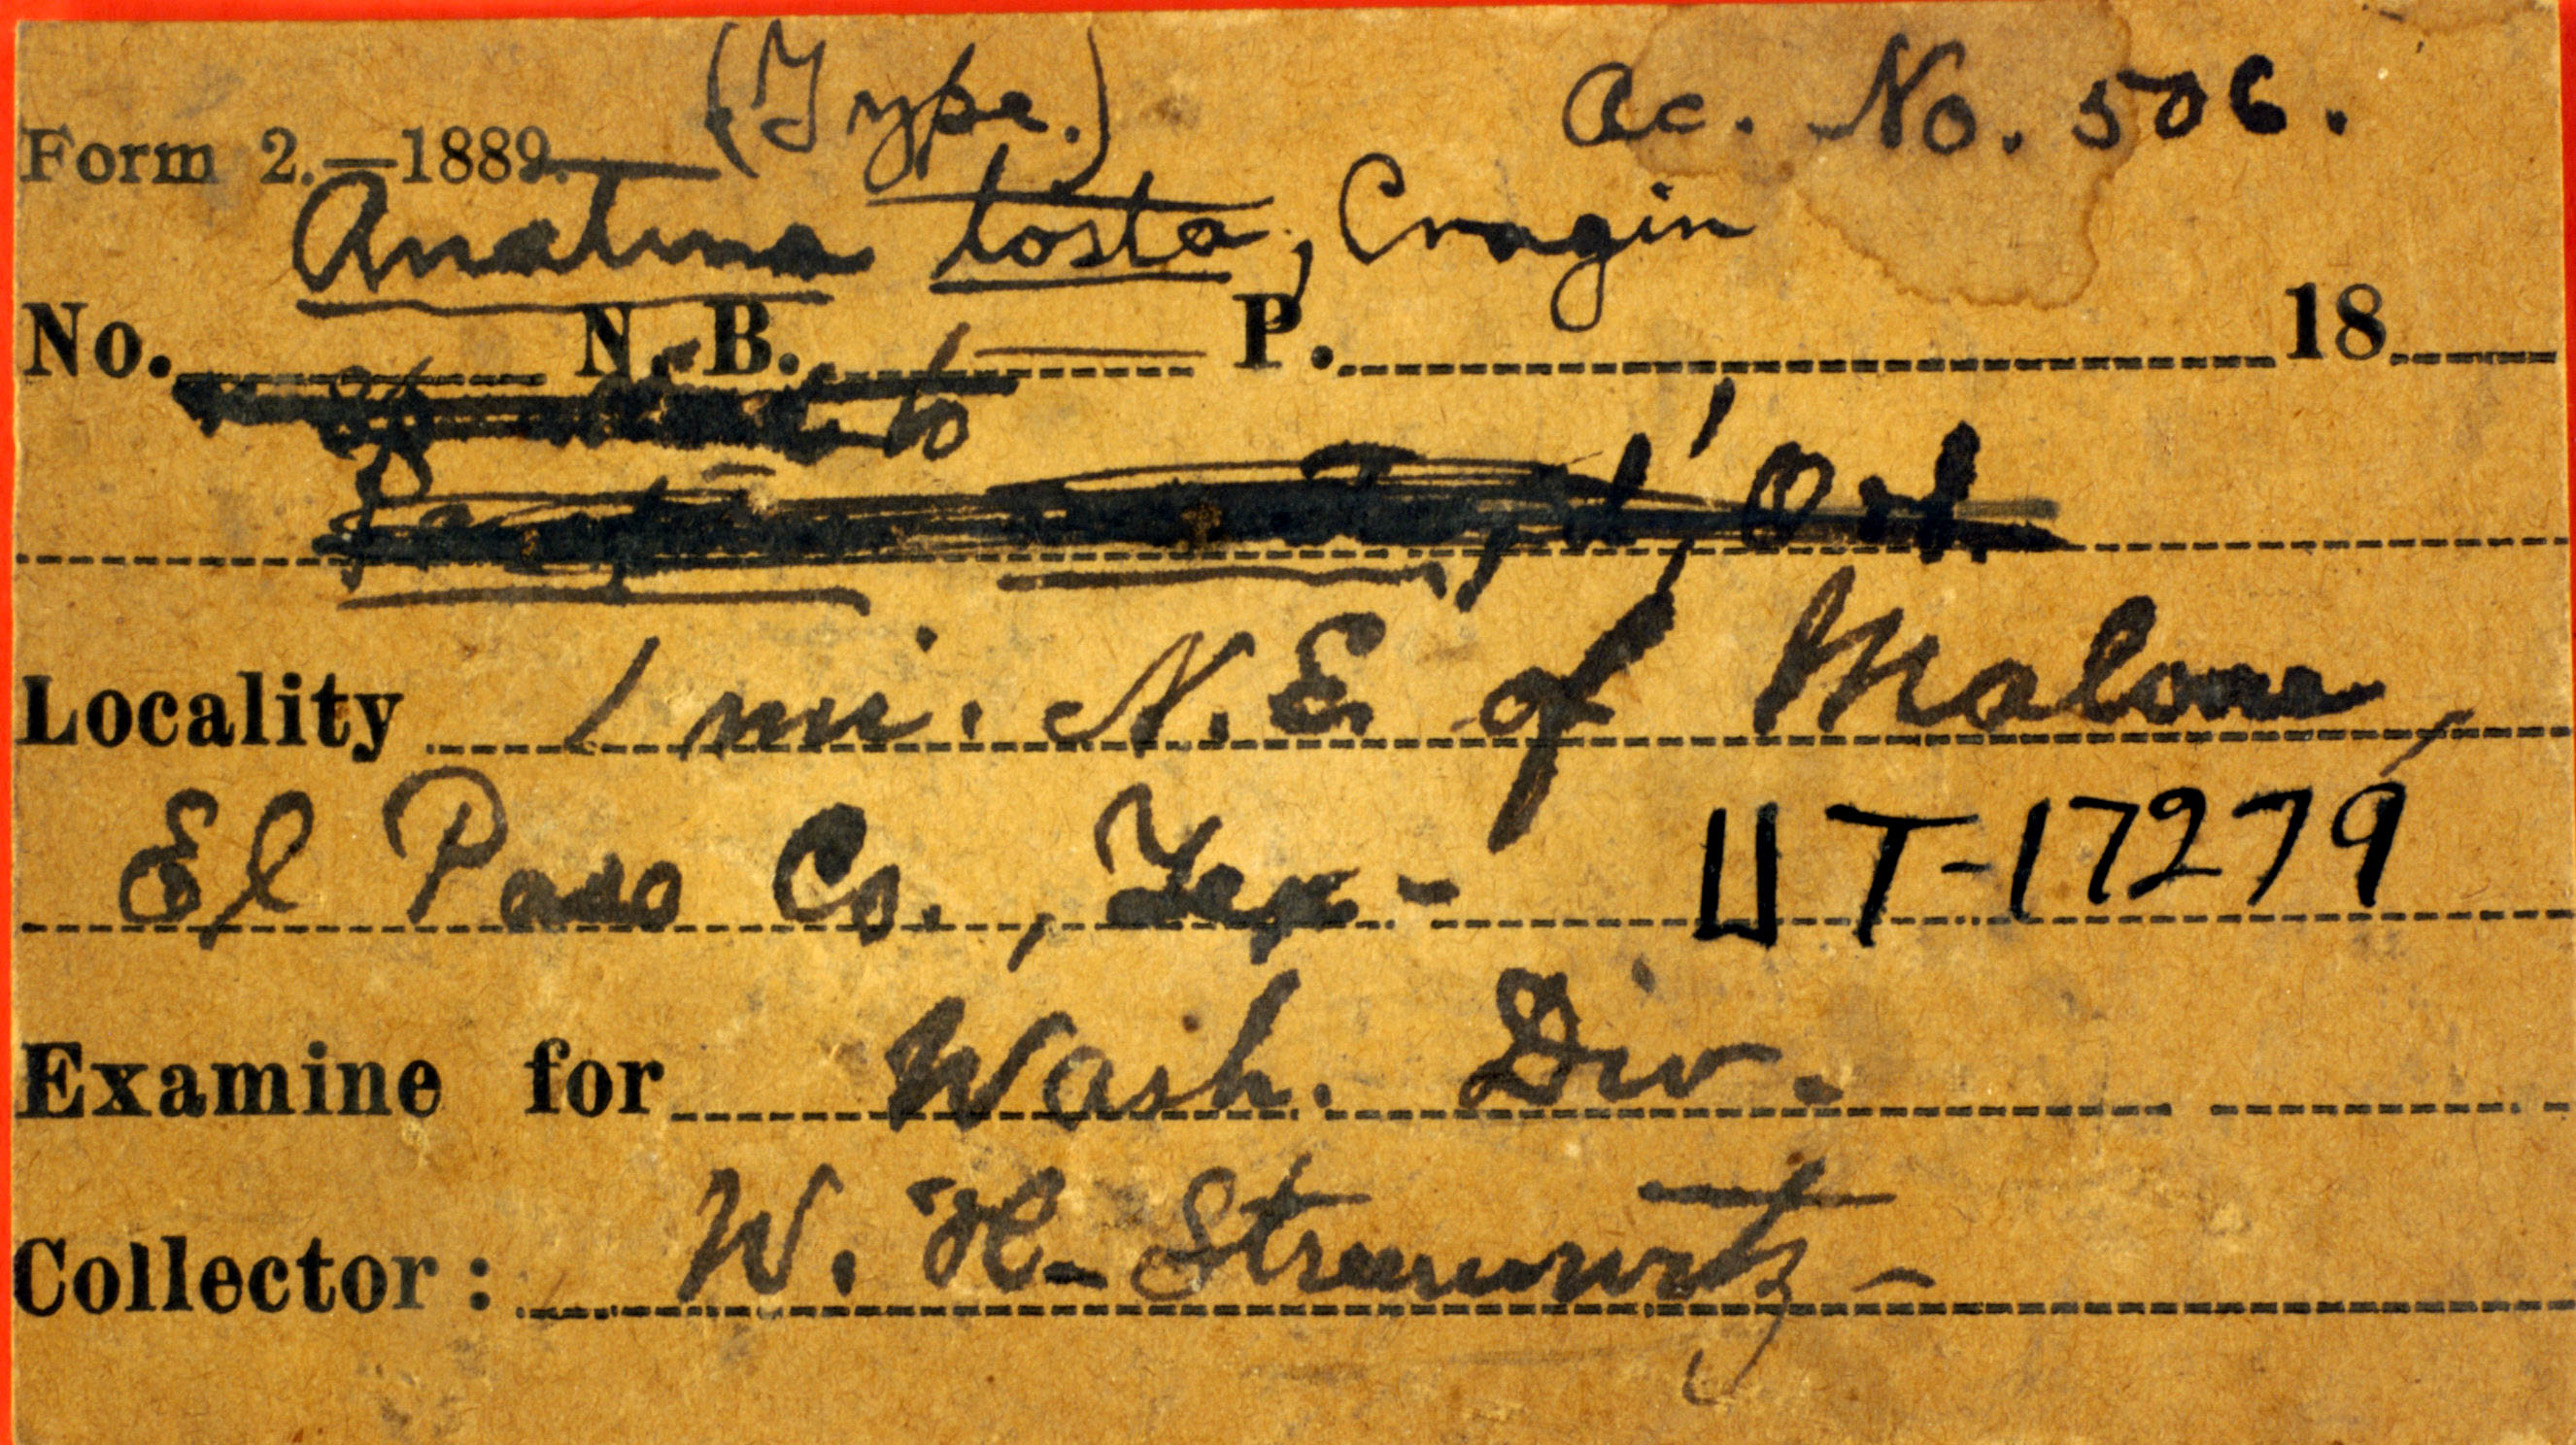 (Type.) Ac. No. 506.
Form 2.—1889.
Anatina tosta, Cragin
No. N. B. P. 18
to
d'Orb.
Locality 1 mi. N.E. of Malone,
El Paso Co., Tex- UT-17279
Examine for Wash. Div.
Collector: W. H. Streeruwitz-